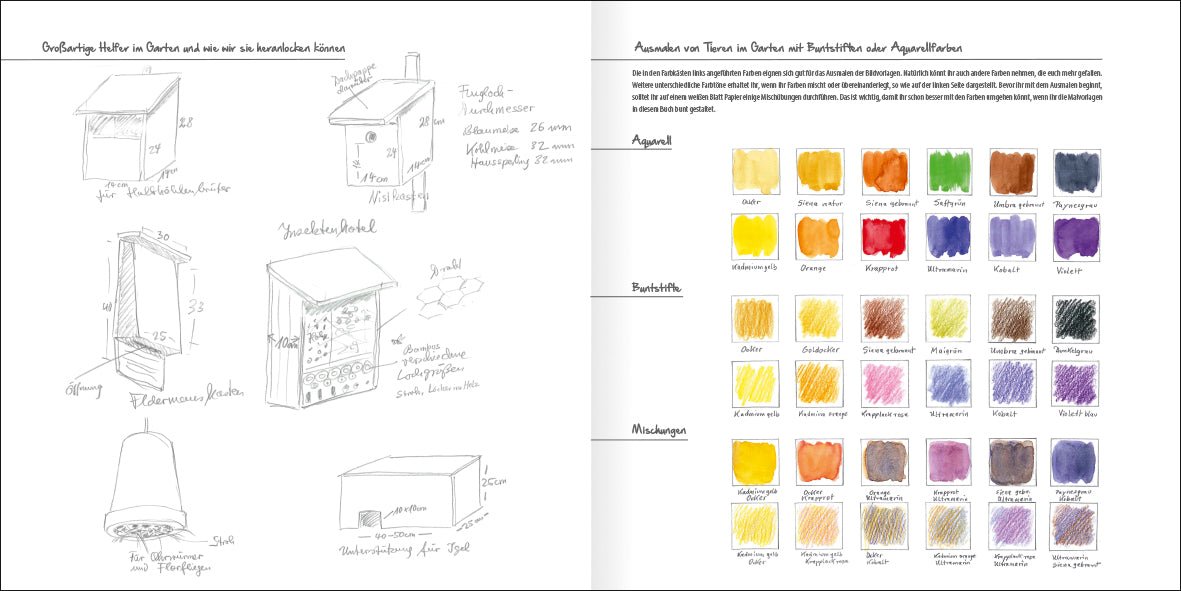 Großartige Helfer im Garten und wie wir sie heranlocken können
28
24
14cm
14cm
für Halbhöhlenbrüter
Dachpappe
darüber
28 cm
24
14cm
14cm
Nistkasten
Flugloch-
durchmesser
Blaumeise 26 mm
Kohlmeise 32 mm
Haussperling 32 mm
30
40
33
25
Öffnung
Fledermauskasten
Insektenhotel
Draht
10cm
Bambus
verschiedene
Lochgrößen
Stroh, Löcher im Holz
Stroh
Für Ohrwürmer
und Florfliegen
25cm
10x10cm
40-50cm
25cm
Unterstützung für Igel
Ausmalen von Tieren im Garten mit Buntstiften oder Aquarellfarben
Die in den Farbkästen links angeführten Farben eignen sich gut für das Ausmalen der Bildvorlagen. Natürlich könnt ihr auch andere Farben nehmen, die euch mehr gefallen.
Weitere unterschiedliche Farbtöne erhaltet ihr, wenn ihr Farben mischt oder übereinanderlegt, so wie auf der linken Seite dargestellt. Bevor ihr mit dem Ausmalen beginnt,
solltet ihr auf einem weißen Blatt Papier einige Mischübungen durchführen. Das ist wichtig, damit ihr schon besser mit den Farben umgehen könnt, wenn ihr die Malvorlagen
in diesem Buch bunt gestaltet.
Aquarell
Ocker Siena natur Siena gebrannt Saftgrün Umbra gebrannt Paynesgrau
Kadmiumgelb Orange Krapprot Ultramarin Kobalt Violett
Buntstifte
Ocker Goldocker Siena gebrannt Maigrün Umbra gebrannt Dunkelgrau
Kadmiumgelb Kadmium orange Krapplack rosa Ultramarin Kobalt Violett blau
Mischungen
Kadmiumgelb Ocker Orange Krapprot Siena gebr. Paynesgrau
Ocker Krapprot Ultramarin Ultramarin Ultramarin Kobalt
Kadmium gelb Kadmium gelb Ocker Kadmium orange Krapplack rosa Ultramarin
Ocker Krapplack rosa Kobalt Ultramarin Ultramarin Siena gebrannt